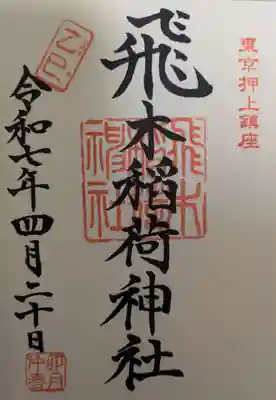 東京押上鎮座
飛木稲荷神社
飛木稲荷神社
令和七年四月二十日
卯月